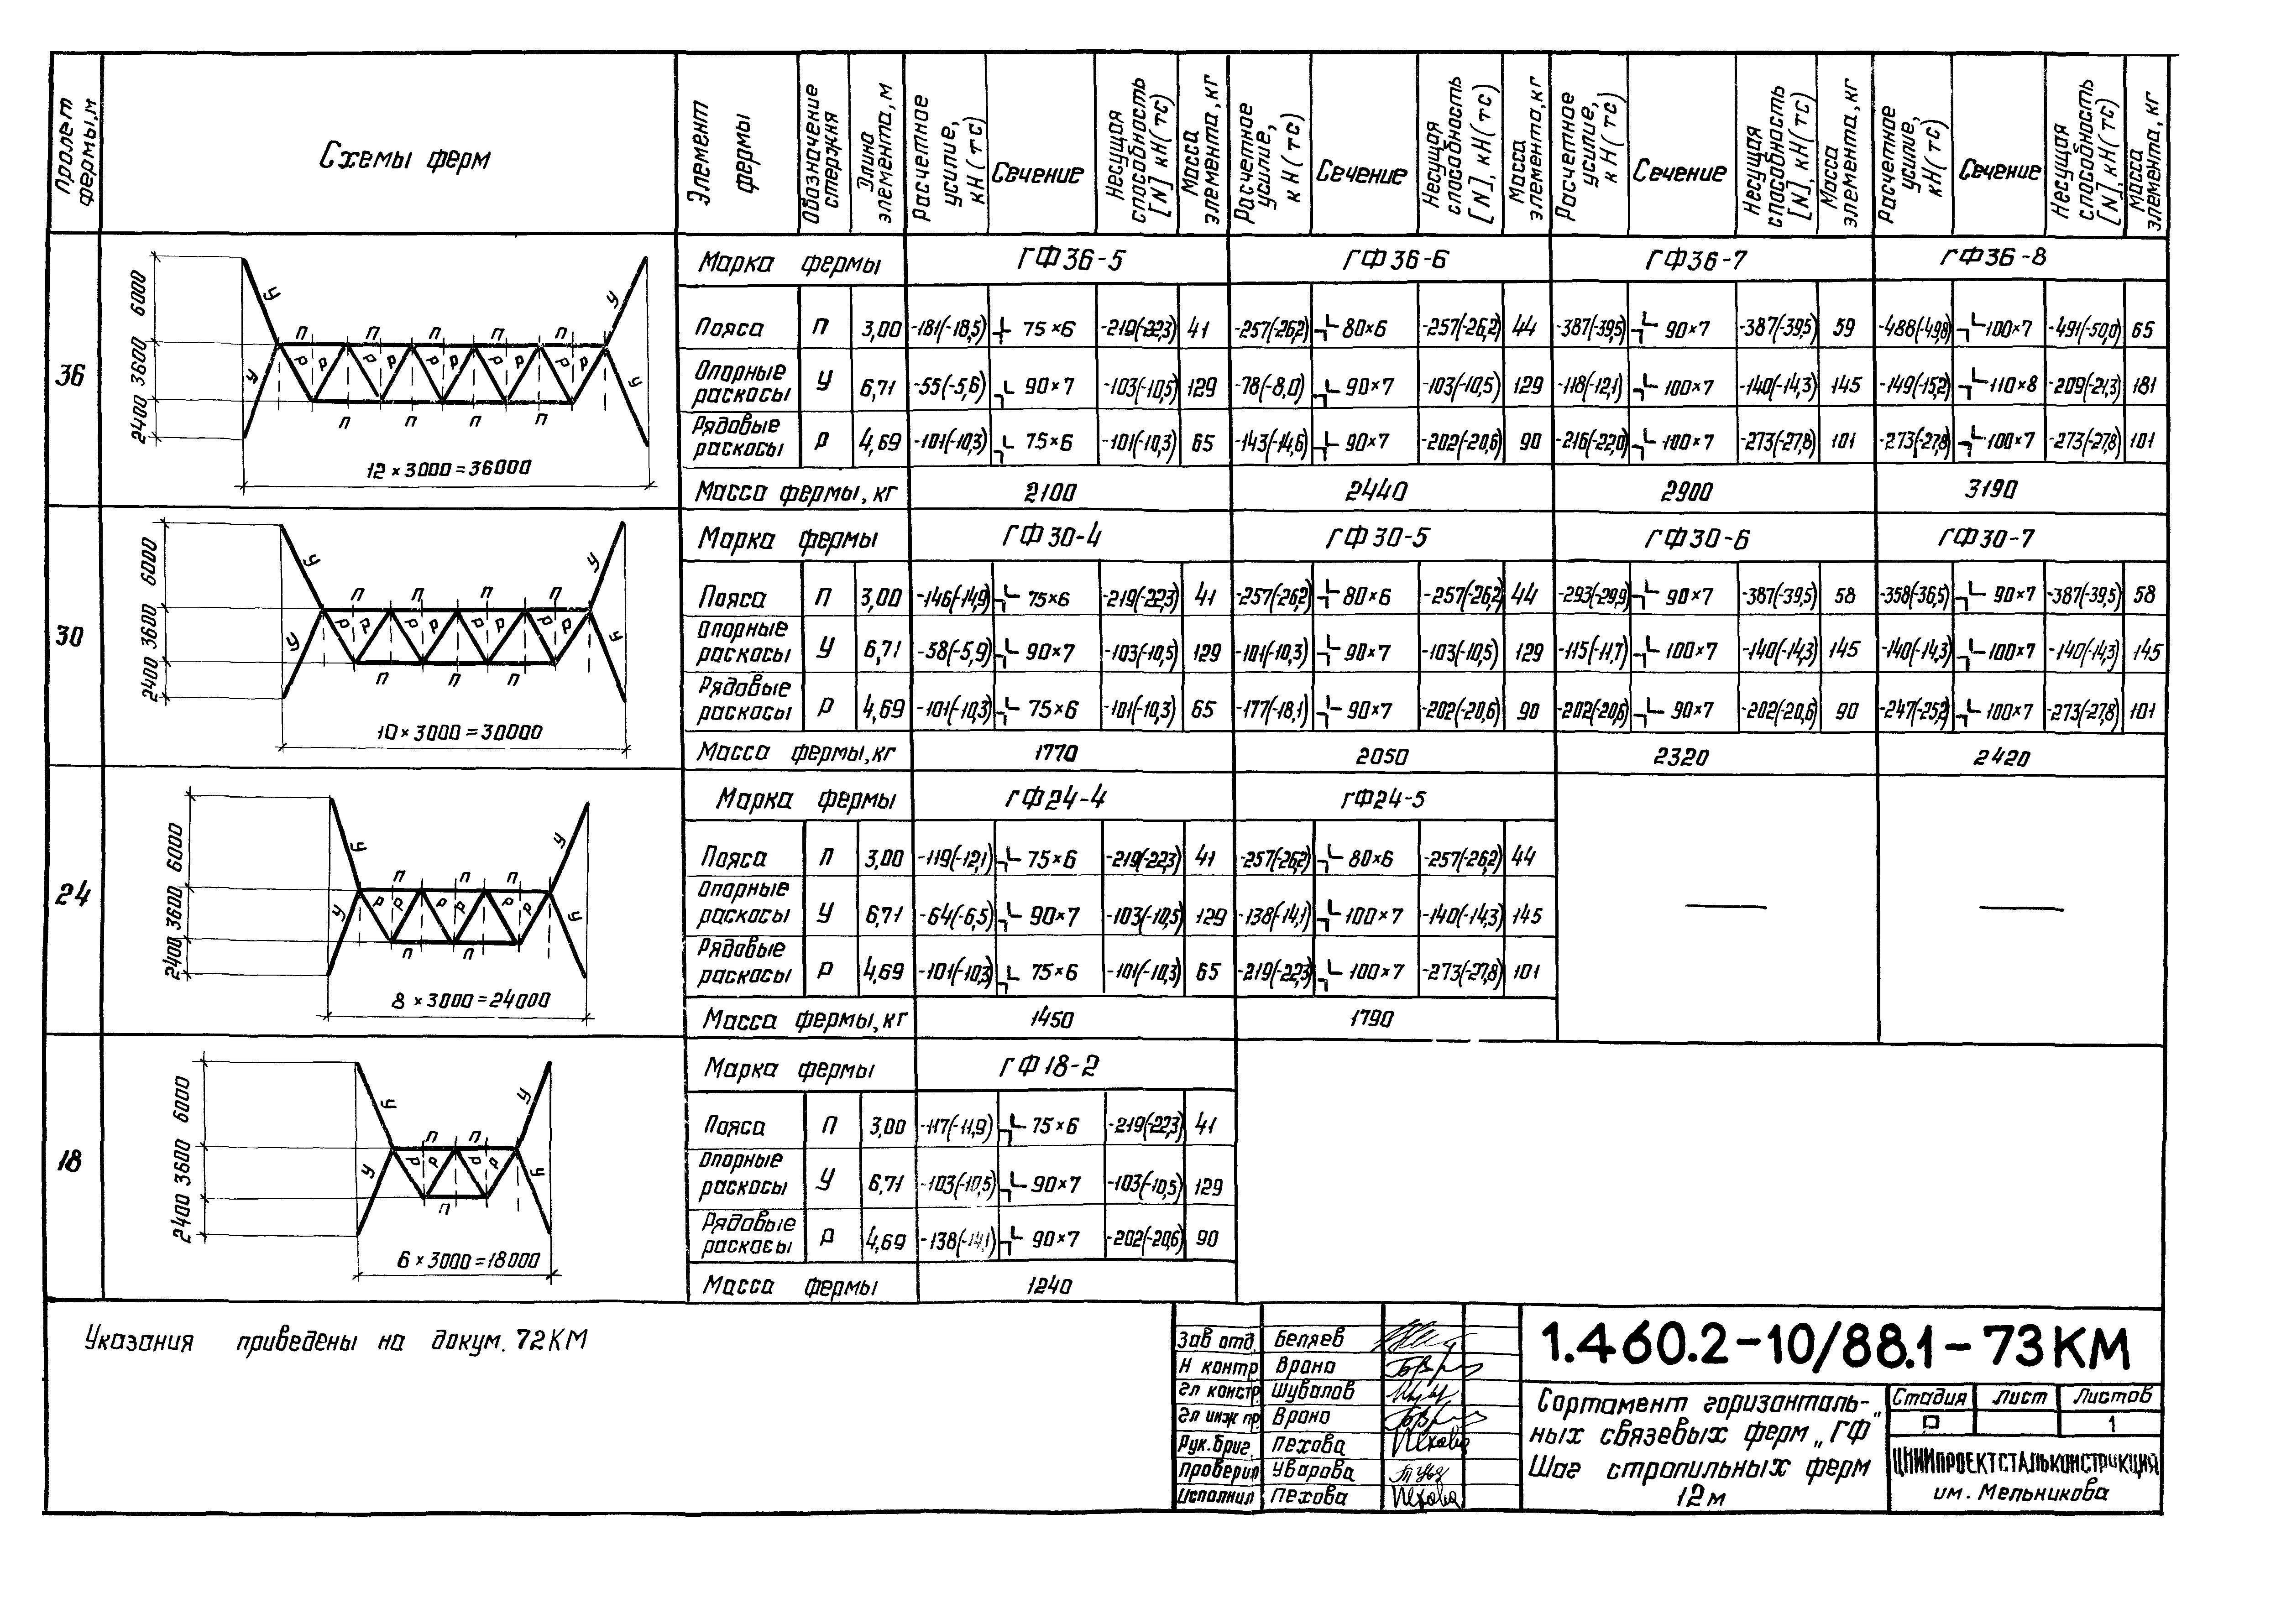 Пролет фермы, м | Схемы ферм | Элемент фермы | Обозначение стержня | Длина элемента, м | Расчетное усилие, кН (тс) | Сечение | Несущая способность [N], кН (тс) | Масса элемента, кг | Расчетное усилие, кН (тс) | Сечение | Несущая способность [N], кН (тс) | Масса элемента, кг | Расчетное усилие, кН (тс) | Сечение | Несущая способность [N], кН (тс) | Масса элемента, кг | Расчетное усилие, кН (тс) | Сечение | Несущая способность [N], кН (тс) | Масса элемента, кг
36
6000
3600
2400
У У У У
П П П П П
Р Р Р Р Р Р Р Р Р Р
П П П П
12 × 3000 = 36000
Марка фермы ГФ36-5 ГФ36-6 ГФ36-7 ГФ36-8
Пояса П 3,00 -181(-18,5) 75×6 -219(-22,3) 41 -257(-26,2) 80×6 -257(-26,2) 44 -387(-39,5) 90×7 -387(-39,5) 59 -488(-49,8) 100×7 -491(-50,0) 65
Опорные раскосы У 6,71 -55(-5,6) 90×7 -103(-10,5) 129 -78(-8,0) 90×7 -103(-10,5) 129 -118(-12,1) 100×7 -140(-14,3) 145 -149(-15,2) 110×8 -209(-21,3) 181
Рядовые раскосы Р 4,69 -101(-10,3) 75×6 -101(-10,3) 65 -143(-14,6) 90×7 -202(-20,6) 90 -216(-22,0) 100×7 -273(-27,8) 101 -273(-27,8) 100×7 -273(-27,8) 101
Масса фермы, кг 2100 2440 2900 3190
30
6000
3600
2400
У У У У
П П П П
Р Р Р Р Р Р Р Р
П П П
10 × 3000 = 30000
Марка фермы ГФ30-4 ГФ30-5 ГФ30-6 ГФ30-7
Пояса П 3,00 -146(-14,9) 75×6 -219(-22,3) 41 -257(-26,2) 80×6 -257(-26,2) 44 -293(-29,9) 90×7 -387(-39,5) 58 -358(-36,5) 90×7 -387(-39,5) 58
Опорные раскосы У 6,71 -58(-5,9) 90×7 -103(-10,5) 129 -101(-10,3) 90×7 -103(-10,5) 129 -115(-11,7) 100×7 -140(-14,3) 145 -140(-14,3) 100×7 -140(-14,3) 145
Рядовые раскосы Р 4,69 -101(-10,3) 75×6 -101(-10,3) 65 -177(-18,1) 90×7 -202(-20,6) 90 -202(-20,6) 90×7 -202(-20,6) 90 -247(-25,2) 100×7 -273(-27,8) 101
Масса фермы, кг 1770 2050 2320 2420
24
6000
3600
2400
У У У У
П П П
Р Р Р Р Р Р
П П
8 × 3000 = 24000
Марка фермы ГФ24-4 ГФ24-5
Пояса П 3,00 -119(-12,1) 75×6 -219(-22,3) 41 -257(-26,2) 80×6 -257(-26,2) 44
Опорные раскосы У 6,71 -64(-6,5) 90×7 -103(-10,5) 129 -138(-14,1) 100×7 -140(-14,3) 145
Рядовые раскосы Р 4,69 -101(-10,3) 75×6 -101(-10,3) 65 -219(-22,3) 100×7 -273(-27,8) 101
Масса фермы, кг 1450 1790
18
6000
3600
2400
У У У У
П П
Р Р Р Р
П
6 × 3000 = 18000
Марка фермы ГФ18-2
Пояса П 3,00 -117(-11,9) 75×6 -219(-22,3) 41
Опорные раскосы У 6,71 -103(-10,5) 90×7 -103(-10,5) 129
Рядовые раскосы Р 4,69 -138(-14,1) 90×7 -202(-20,6) 90
Масса фермы 1240
Указания приведены на докум. 72КМ
Зав отд. Беляев
Н контр Врано
Гл констр. Шувалов
Гл инж пр. Врано
Рук. бриг. Пехова Пехова
Проверил Уварова
Исполнил Пехова Пехова
1.460.2-10/88.1-73КМ
Сортамент горизонталь-
ных связевых ферм „ГФ"
Шаг стропильных ферм
12м
Стадия Лист Листов
Р 1
ЦНИИПРОЕКТСТАЛЬКОНСТРУКЦИЯ
им. Мельникова